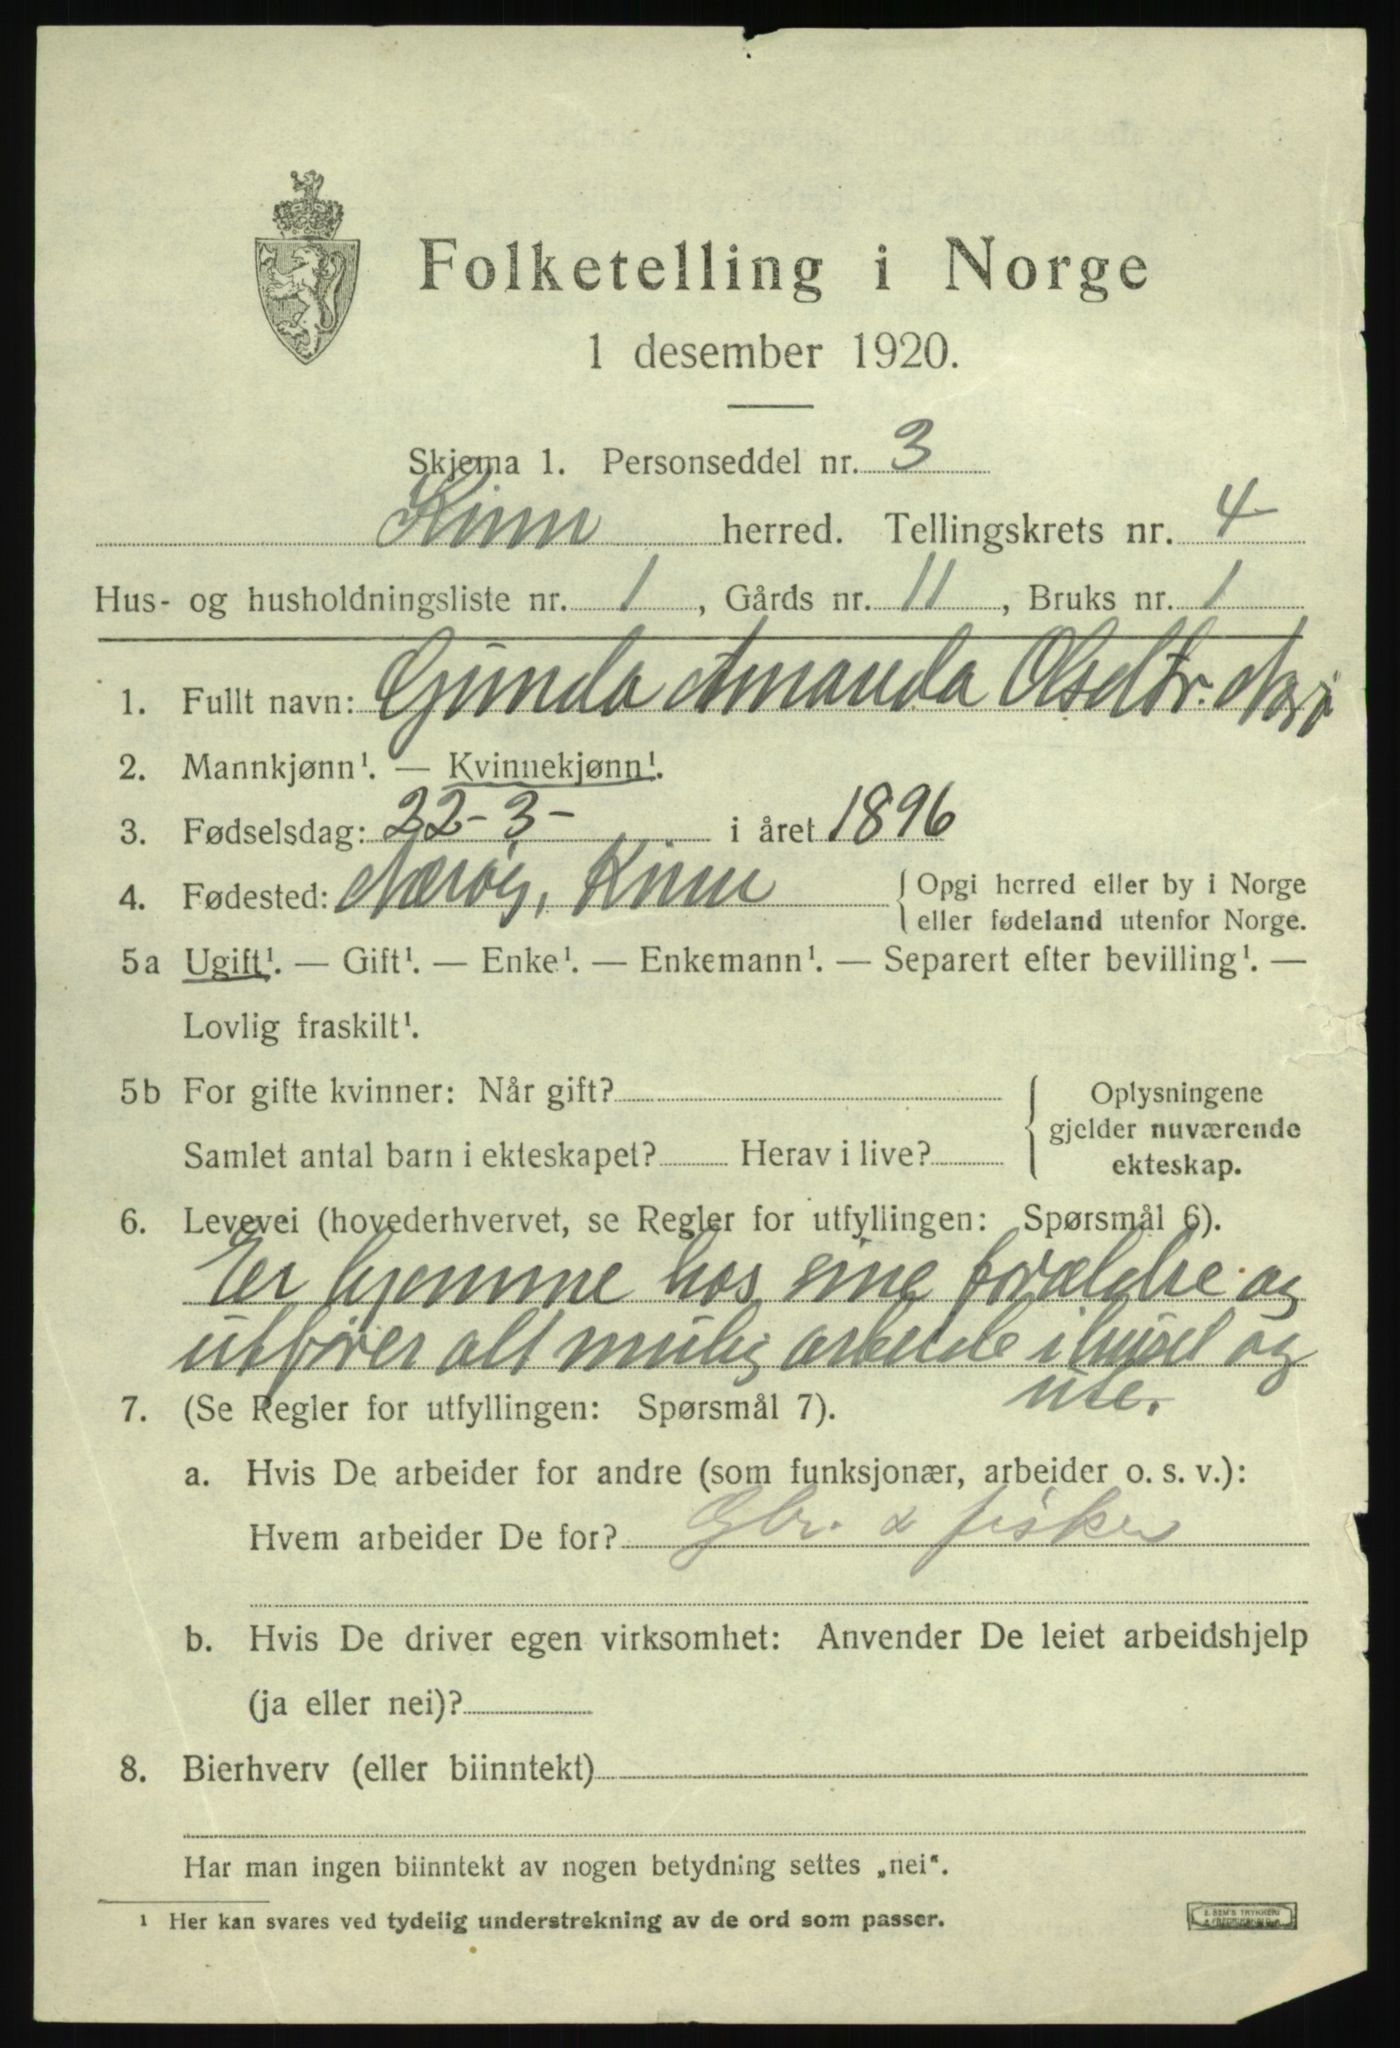 Folketelling i Norge
1 desember 1920.
Skjema 1. Personseddel nr. 3
Kinn herred. Tellingskrets nr. 4
Hus- og husholdningsliste nr. 1, Gårds nr. 11, Bruks nr. 1
1. Fullt navn: Gunda Amanda Olsdtr.
2. Mannkjønn¹. — Kvinnekjønn¹.
3. Fødselsdag: 22-3- i året 1896
4. Fødested: Nærøy, Kinn { Opgi herred eller by i Norge
eller fødeland utenfor Norge.
5a Ugift¹. — Gift¹. — Enke¹. — Enkemann¹. — Separert efter bevilling¹. —
Lovlig fraskilt¹.
5b For gifte kvinner: Når gift? { Oplysningene
gjelder nuværende
Samlet antal barn i ekteskapet? Herav i live? ekteskap.
6. Levevei (hovederhvervet, se Regler for utfyllingen: Spørsmål 6).
Er hjemme hos sine forældre og
utfører alt mulig arbeide i huset og
ute.
7. (Se Regler for utfyllingen: Spørsmål 7).
a. Hvis De arbeider for andre (som funksjonær, arbeider o. s. v.):
Hvem arbeider De for? Gbr. & fisker
b. Hvis De driver egen virksomhet: Anvender De leiet arbeidshjelp
(ja eller nei)?
8. Bierhverv (eller biinntekt)
Har man ingen biinntekt av nogen betydning settes „nei“.
¹ Her kan svares ved tydelig understrekning av de ord som passer.